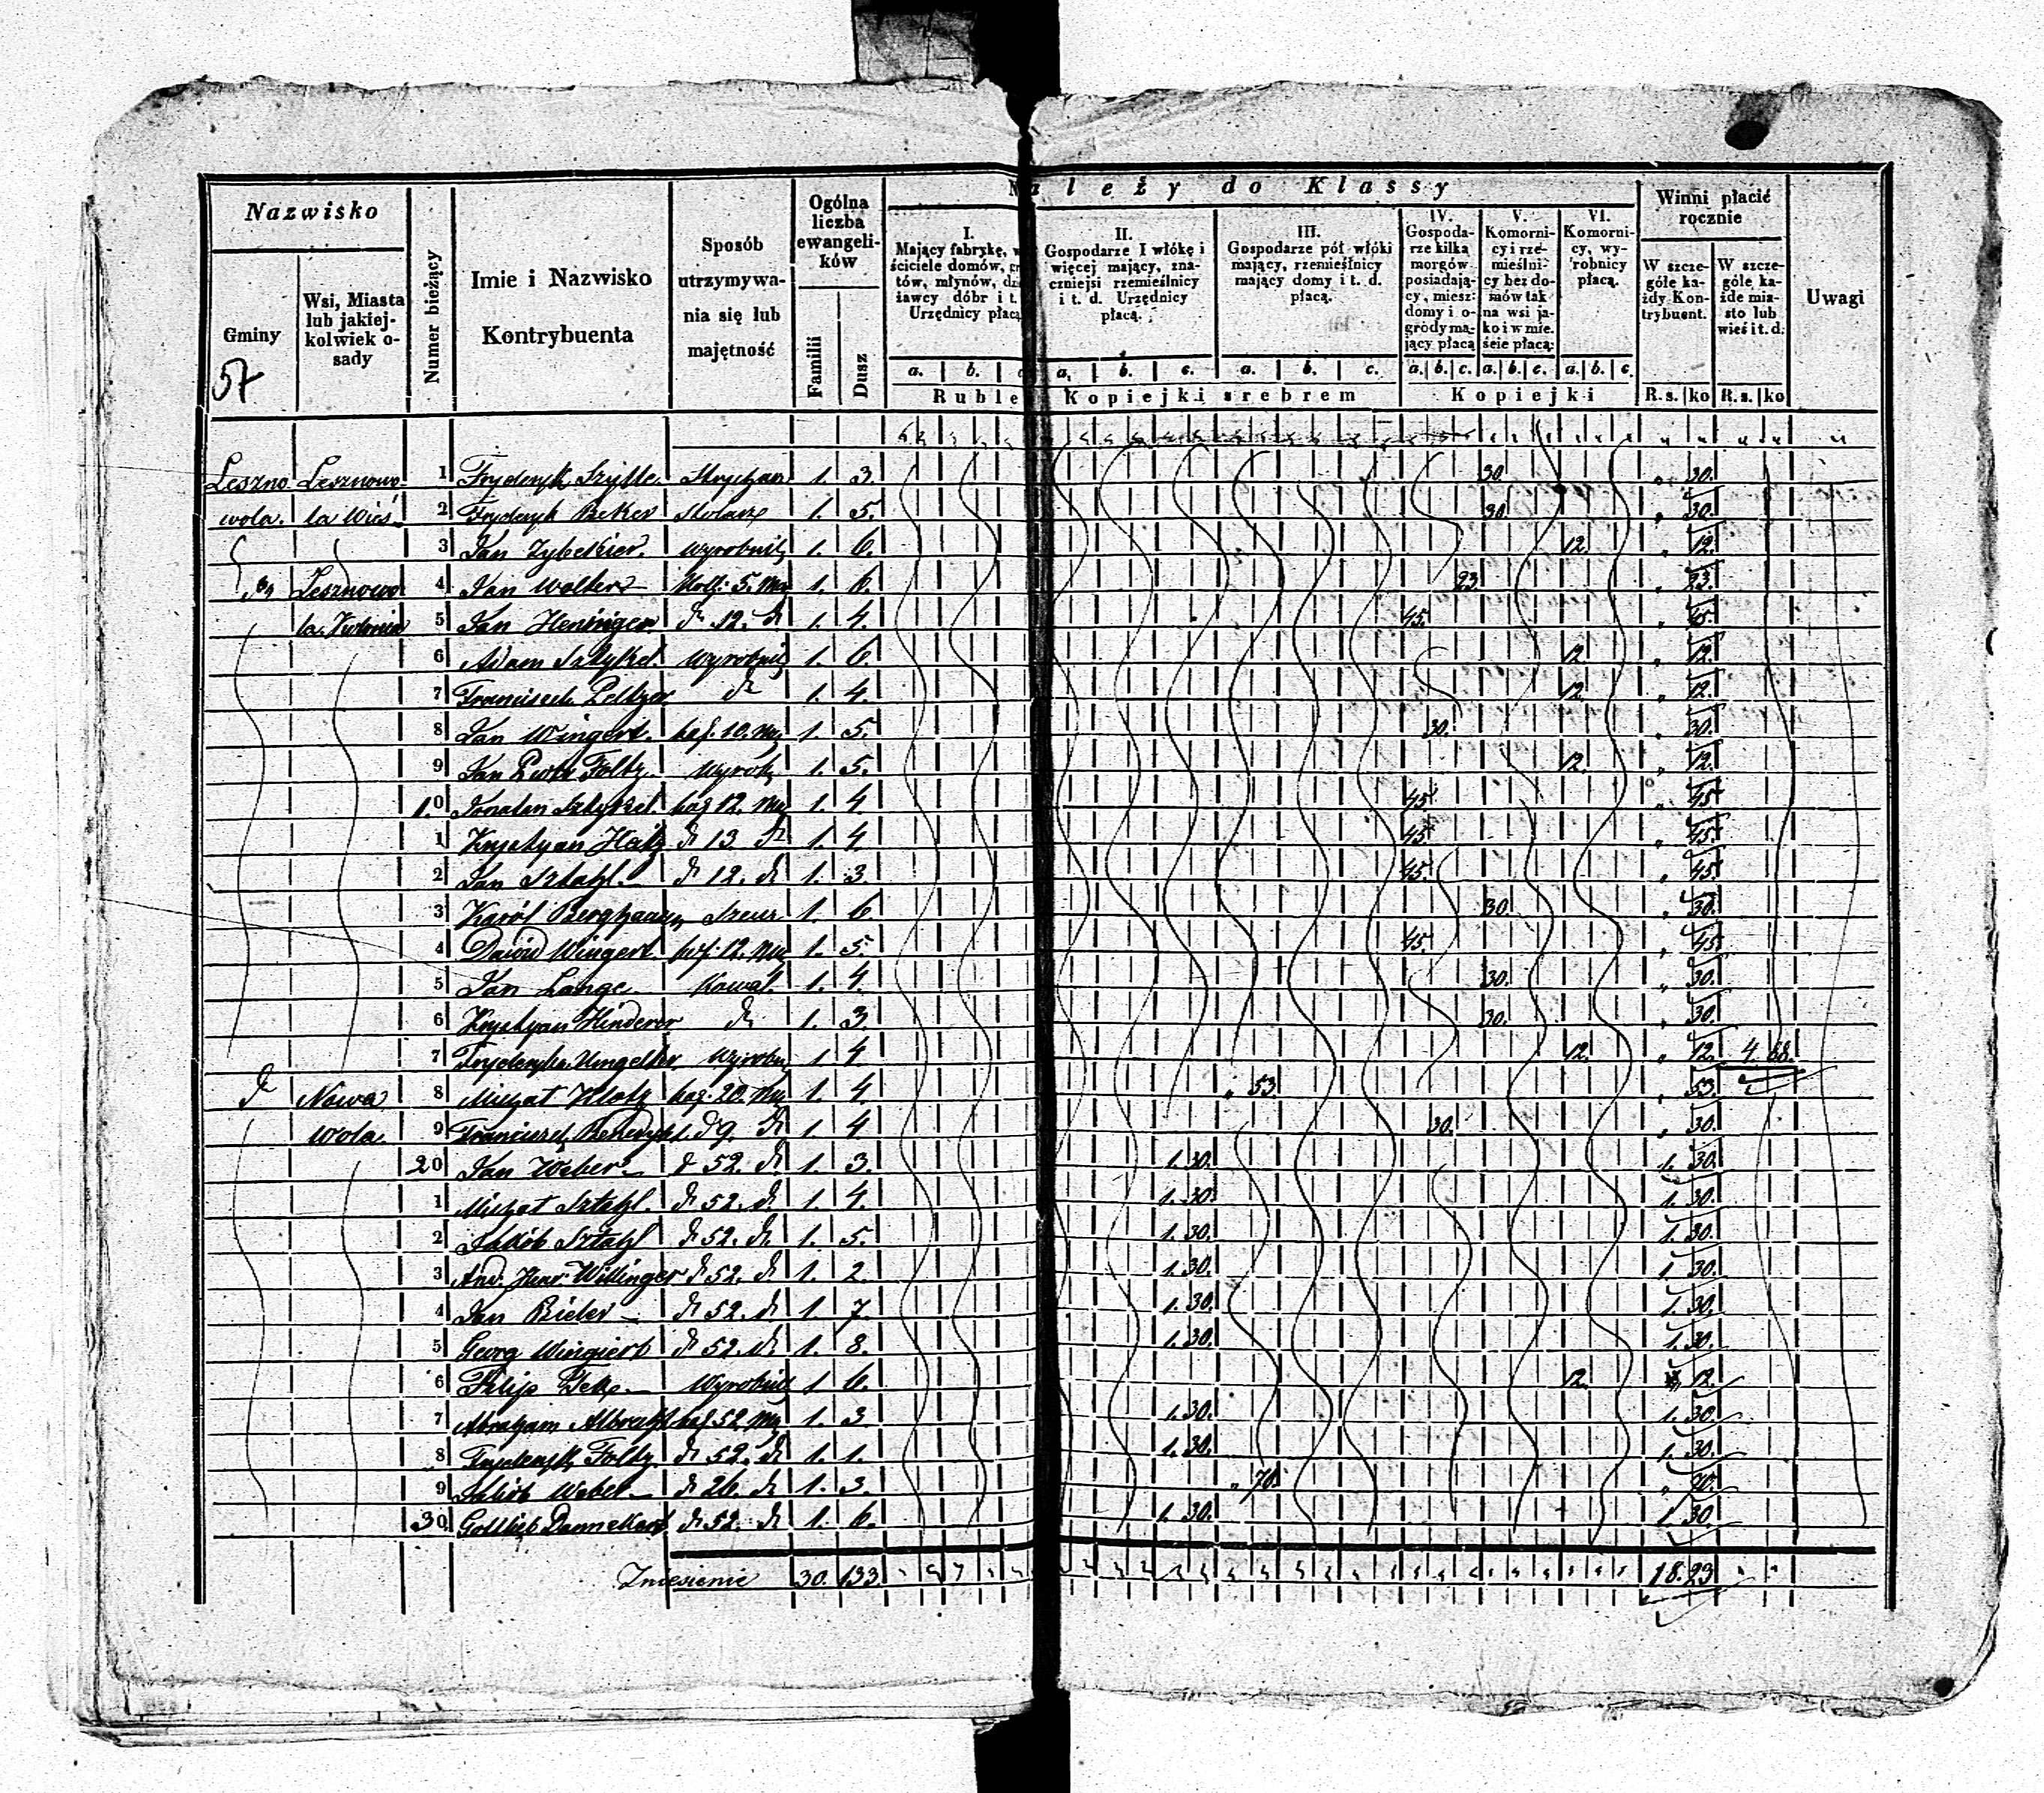 Należy do Klassy
Nazwisko
Gminy
Wsi, Miasta lub jakiej-kolwiek o-sady
Numer bieżący
Imie i Nazwisko Kontrybuenta
Sposób utrzymywa-nia się lub majętność
Ogólna liczba ewangeli-ków
Familii
Dusz
I. Mający fabrykę, ściciele domów, tów, młynów, żawcy dóbr i t. Urzędnicy płacą
II. Gospodarze I włókę i więcej mający, zna-czniejsi rzemieślnicy i t. d. Urzędnicy płacą.
III. Gospodarze pół włóki mający, rzemieślnicy mający domy i t. d. płacą.
IV. Gospoda-rze kilka morgów posiadają-cy, miesz: domy i o-grody ma-jący płacą
V. Komorni-cy i rze-mieślni-cy bez do-mów tak na wsi ja-ko i w mie-ście płacą:
VI. Komorni-cy, wy-robnicy płacą.
Winni płacić rocznie
W szcze-góle ka-żdy Kon-trybuent.
W szcze-góle ka-żde mia-sto lub wieś i t. d.
Uwagi
57
a. b. a. b. c. a. b. c. a. b. c. a. b. c. a. b. c.
Ruble Kopiejki srebrem Kopiejki R.s. ko R.s. ko
Leszno Lesznowo 1 Fryderyk Szytte 1. 3. 30. 30.
wola. la Wieś 2 Fryderyk Beker Stolarz 1. 5. 30. 30.
3 Jan wyrobnik 1. 6. 12. 12.
Lesznowo 4 Jan Wolker 5. 1. 6. 23. 23.
la Kolonia 5 Jan Heninger d 12. d 1. 4. 45. 45.
6 Adam Sztykel wyrobnik 1. 6. 12. 12.
7 Franciszek Peltzer d 1. 4. 12. 12.
8 Jan Wingert. 10. 1. 5. 30. 30.
9 Jan Foltz wyrob 1. 5. 12. 12.
10 Jonatan Sztykel. 12. 1. 4. 45. 45.
1 Krystyan Hatz d 13. d 1. 4. 45. 45.
2 Jan Sztahl. d 12. d 1. 3. 45. 45.
3 Karól Berghauzen 1. 6. 30. 30.
4 Dawid Wingert 12. 1. 5. 45. 45.
5 Jan Lange Kowal. 1. 4. 30. 30.
6 Krystyan Hinderer d 1. 3. 30. 30.
7 Fryderyka Ungelter 1. 4. 12. 12. 4. 68.
d Nowa 8 Michał Klotz 20. 1. 4. 53 53.
Wola 9 Franciszek Benedykt. d 9. d 1. 4. 30. 30.
20 Jan Weber d 52. d 1. 3. 1. 30. 1. 30.
1 Michał Sztahl. d 52. d. 1. 4. 1. 30. 1. 30.
2 Jakób Sztahl d 52. d. 1. 5. 1. 30. 1. 30.
3 And. Henr. Willinger d 52. d 1. 2. 1. 30. 1 30.
4 Jan Bieler d 52. d 1. 7. 1. 30. 1. 30.
5 Georg Wingiert d 52. d. 1. 8. 1. 30. 1. 30.
6 Filip Wyrobnik 1 6. 12. 12.
7 Abraham Albrecht 52. 1. 3 1. 30. 1. 30.
8 Fryderyk Foltz d 52. d 1. 1. 1. 30. 1. 30.
9 Jakób Weber d 26. d 1. 3. 70. 70.
30 Gottlieb Dannekert d 52. d 1. 6. 1. 30. 1. 30.
Zniesienie 30. 133. 18. 23